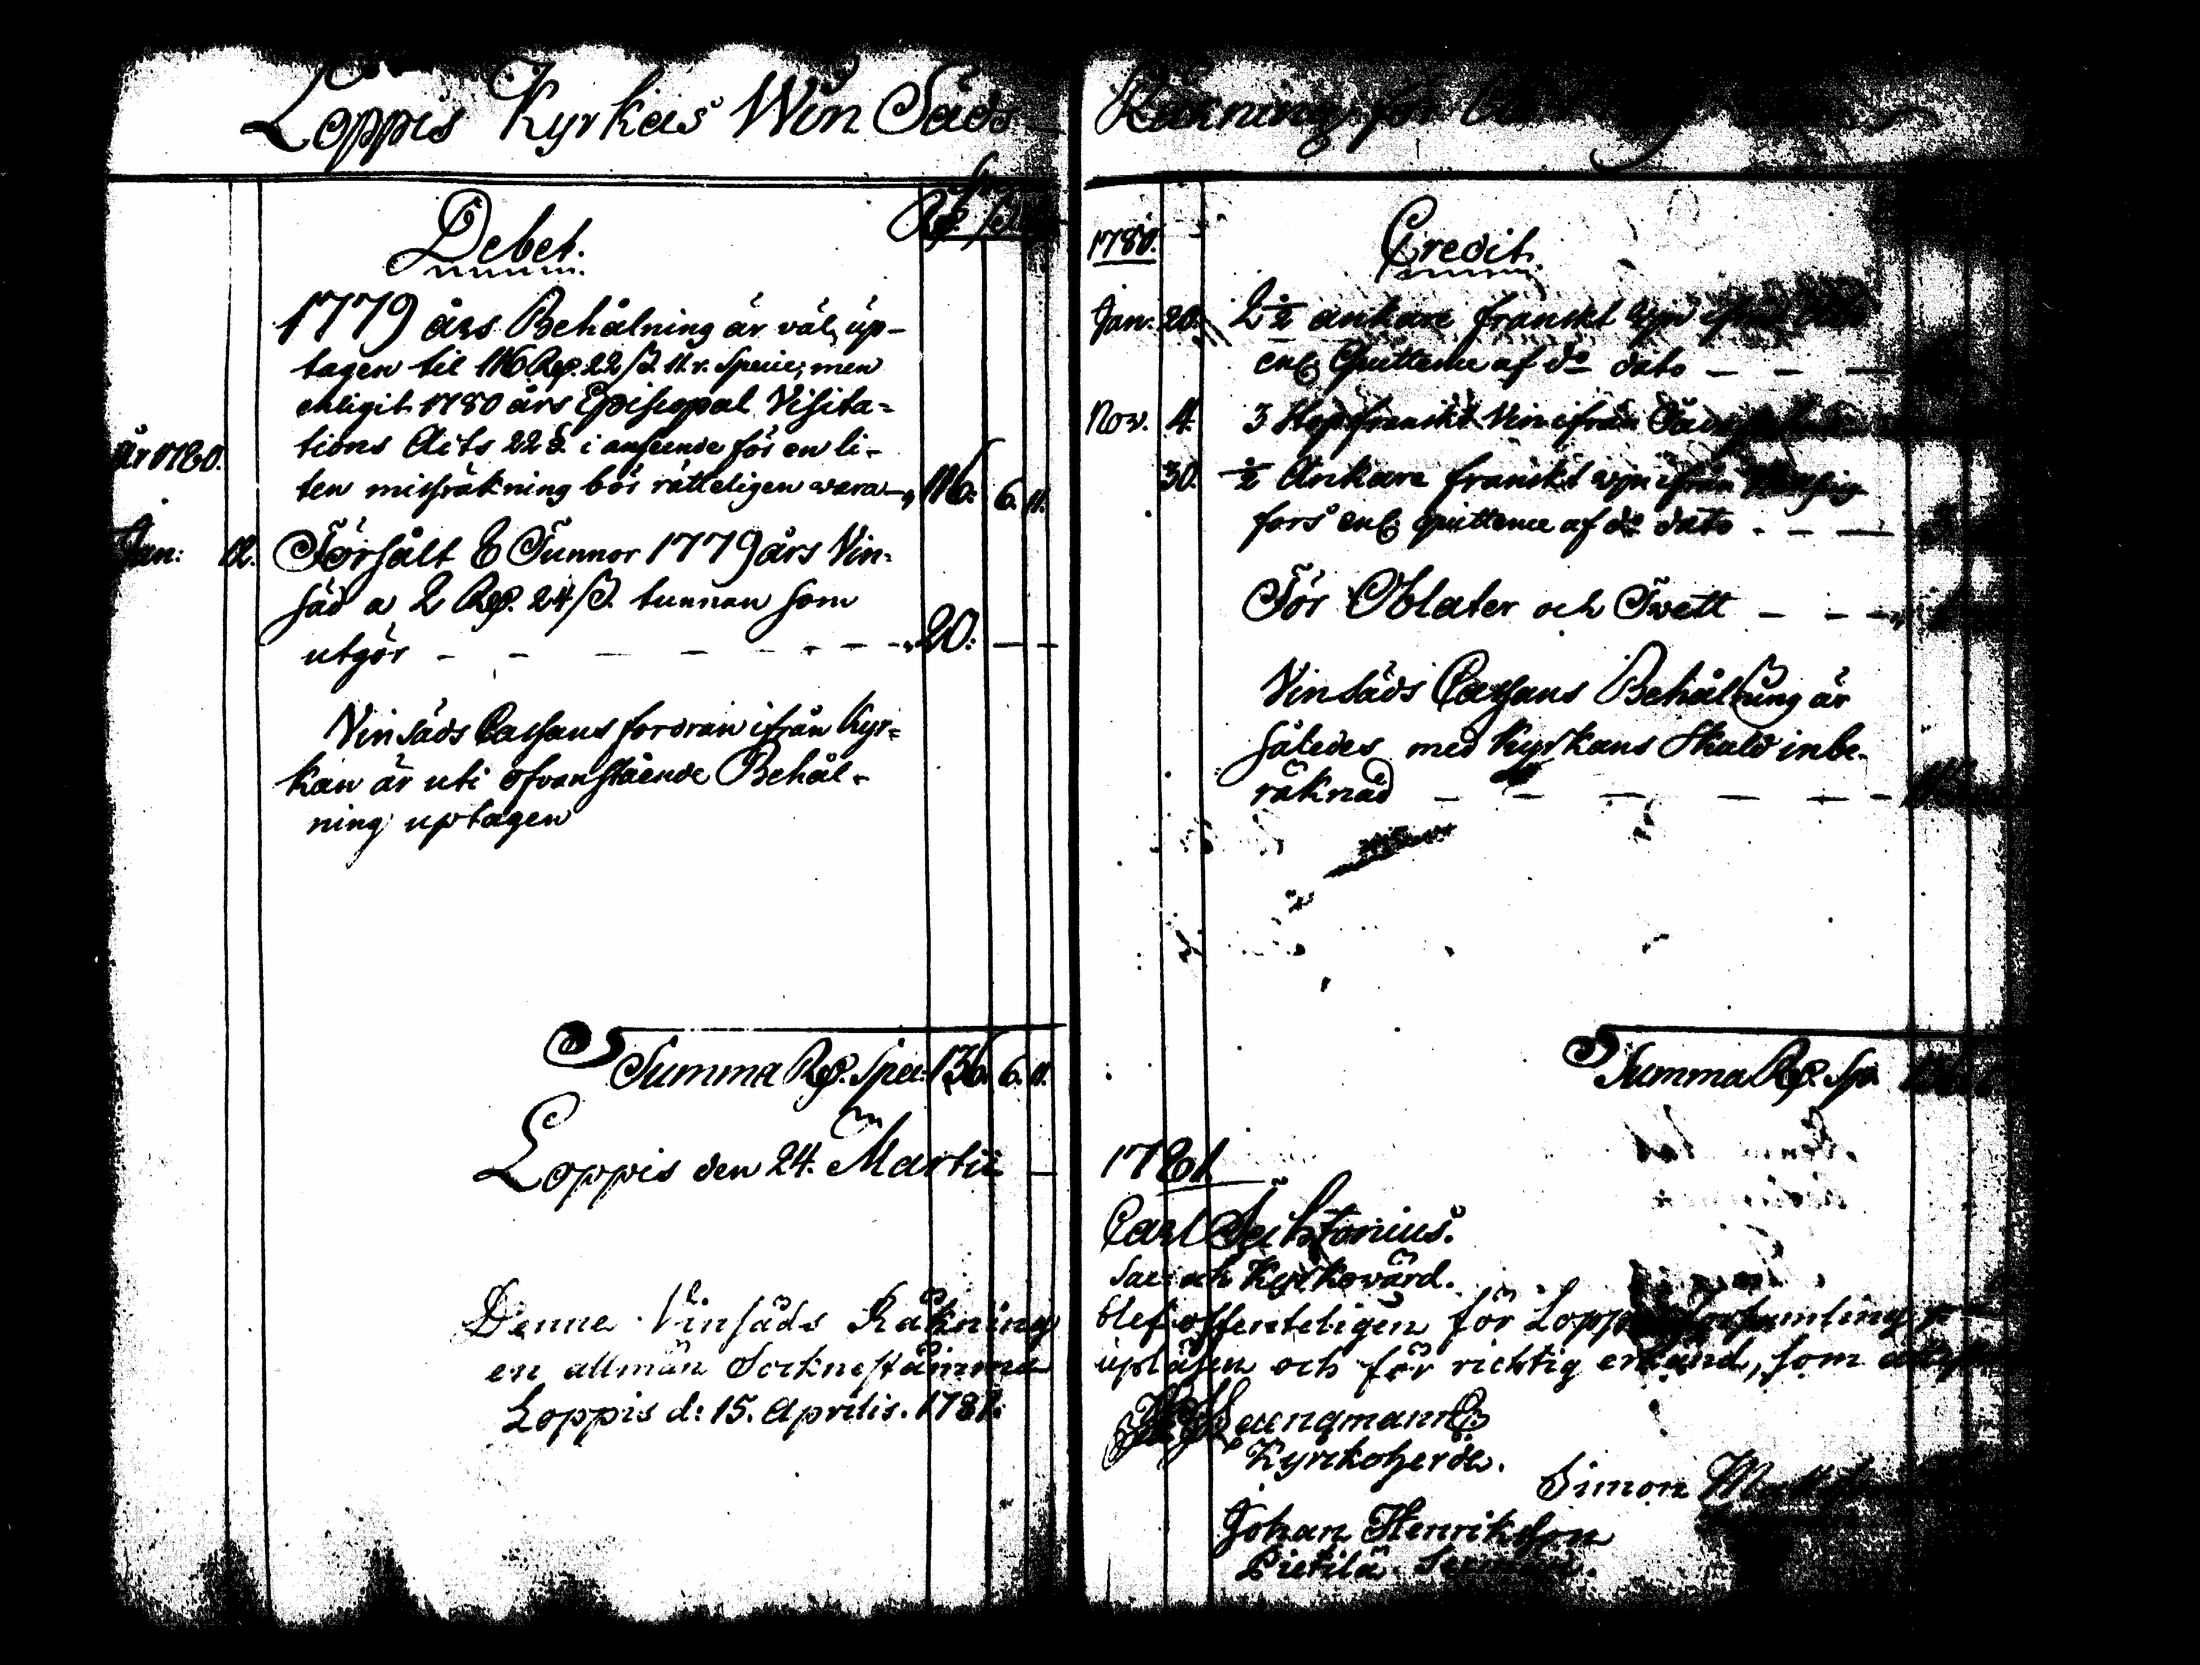 Loppis Kyrkas Win Säds
Debet.
1779 års Behålning är väl up-
tagen til 116 Rd. 22 ß. 11 r. Specie; men
enligit 1780 års Episcopal Visita-
tions Acts 22 §. i anseende för en li-
År 1780.
ten missräkning bör rätteligen wara 116. 6. 11.
Jan: 12. Försålt 8 Tunnor 1779 års Vin-
säd a 2 Rd. 24 ß. tunnan som
utgör - - - - - - - 20: - -
Vinsäds Cassans fordran ifrån Kyr-
kan är uti ofvanstående Behål-
ning uptagen
Summa Rd. Spec: 136. 6. 11.
Loppis den 24. Martii
Denne Vinsäds Räkning
en allmän Sockne stämma
Loppis d: 15. Aprilis. 1781.
Räkning för
1780. Credit.
Jan: 20. 2½ ankare franskt
enl. Quittence af do dato - - -
Nov. 4. 3 Stop franskt Vin ifrån
30. ½ Ankare franskt wjn ifrån
fors enl. quittence af do dato - - -
För Oblater och Tvett - - -
Vinsäds Cassans Behålning är
således med Kyrkans Skuld inbe-
räknad - - - - - -
Summa Rd. Sp.
1781
Carl
Kyrkovärd.
blef offenteligen för
upläsen och för richtig erkänd, som
Kyrkoherde.
Simon
Johan Henriksson
Pietilä